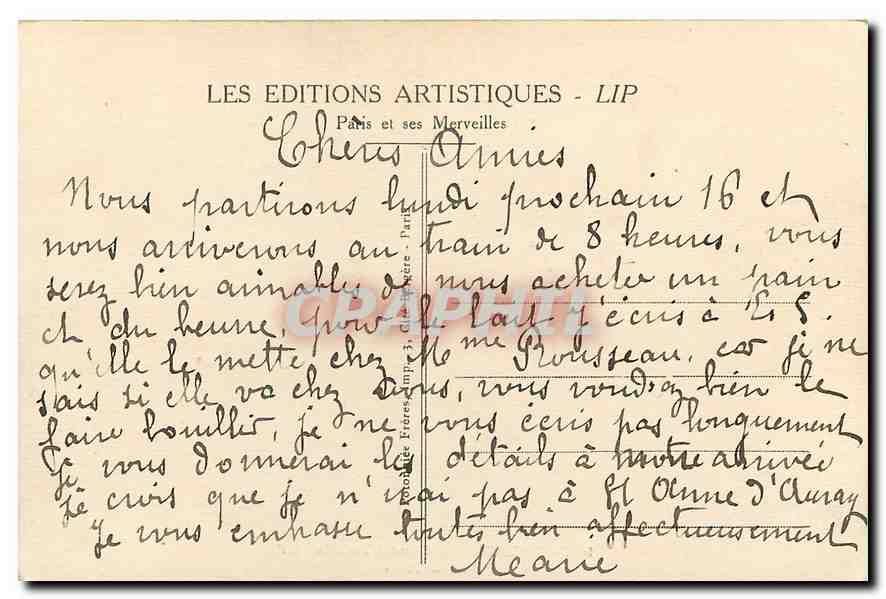 LES EDITIONS ARTISTIQUES - LIP
Paris et ses Merveilles
Chères Amies
Nous partirons lundi prochain 16 et
nous arriverons au train de 8 heures, vous
serez bien aimables de nous acheter un pain
et du beurre, pour le lait j'écris à
qu'elle le mette chez Mme Rousseau, car je ne
sais si elle va chez vous, vous voudrez bien le
faire bouillir, je ne vous écris pas longuement
je vous donnerai les détails à notre arrivée
je crois que je n'irai pas à St Anne d'Auray
Je vous embrasse toutes bien affectueusement
CPAPHIL
Frères, Imp., 3, - Paris